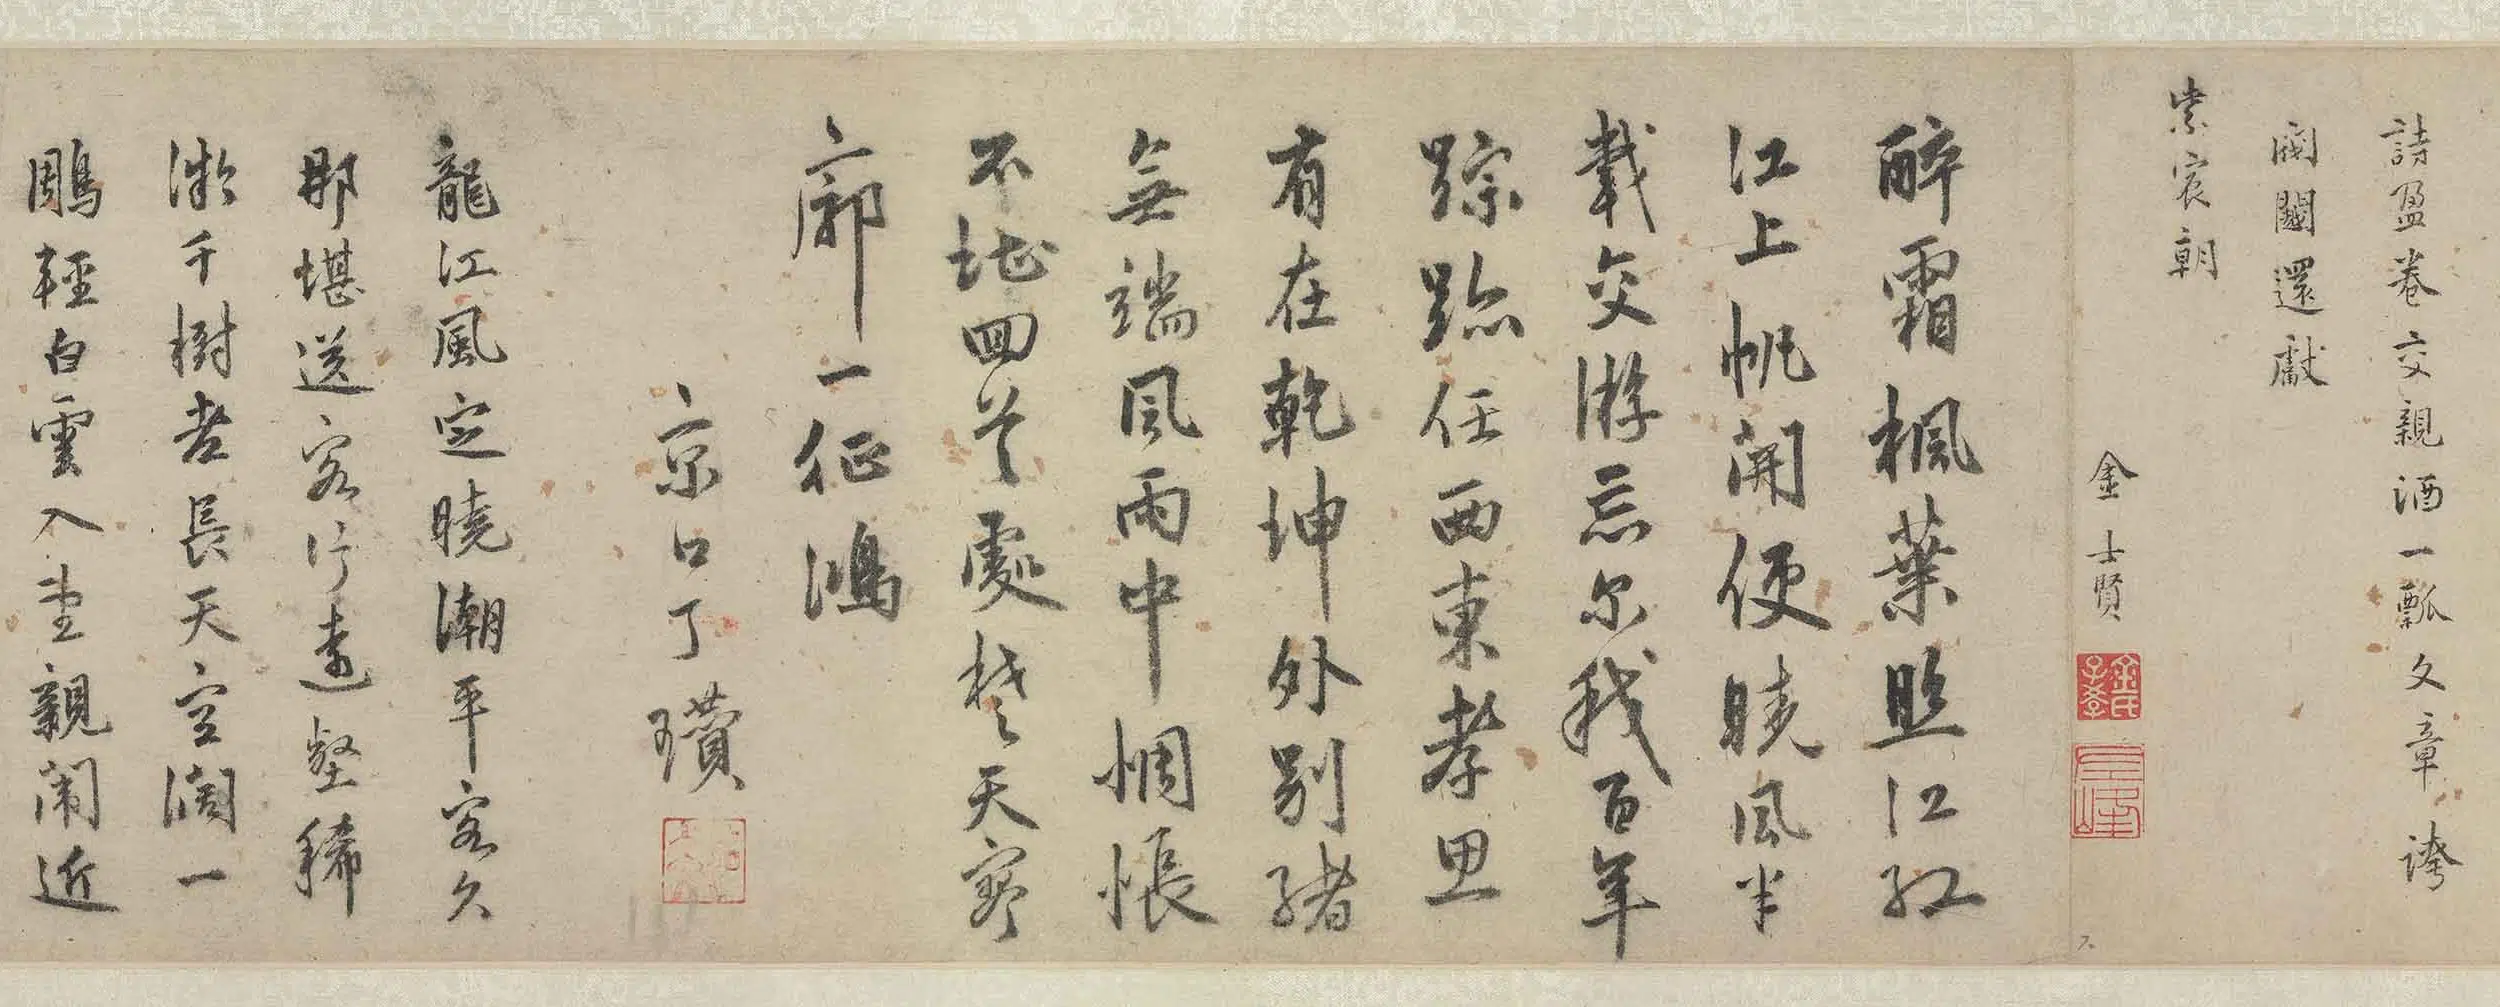 詩盈卷交親酒一瓢文章誇
閶闔還獻
紫宸朝
金士賢
醉霜楓葉照江紅
江上帆開便曉風半
載交游忘尔我百年
踪跡任西東孝思
有在乾坤外別緒
無端風雨中惆悵
不堪回首處楚天寥
廓一征鴻
京口丁瓚
龍江風定曉潮平客久
那堪送客行遠壑稀
微千樹杳長天空闊一
鵰輕白雲入望親闈近